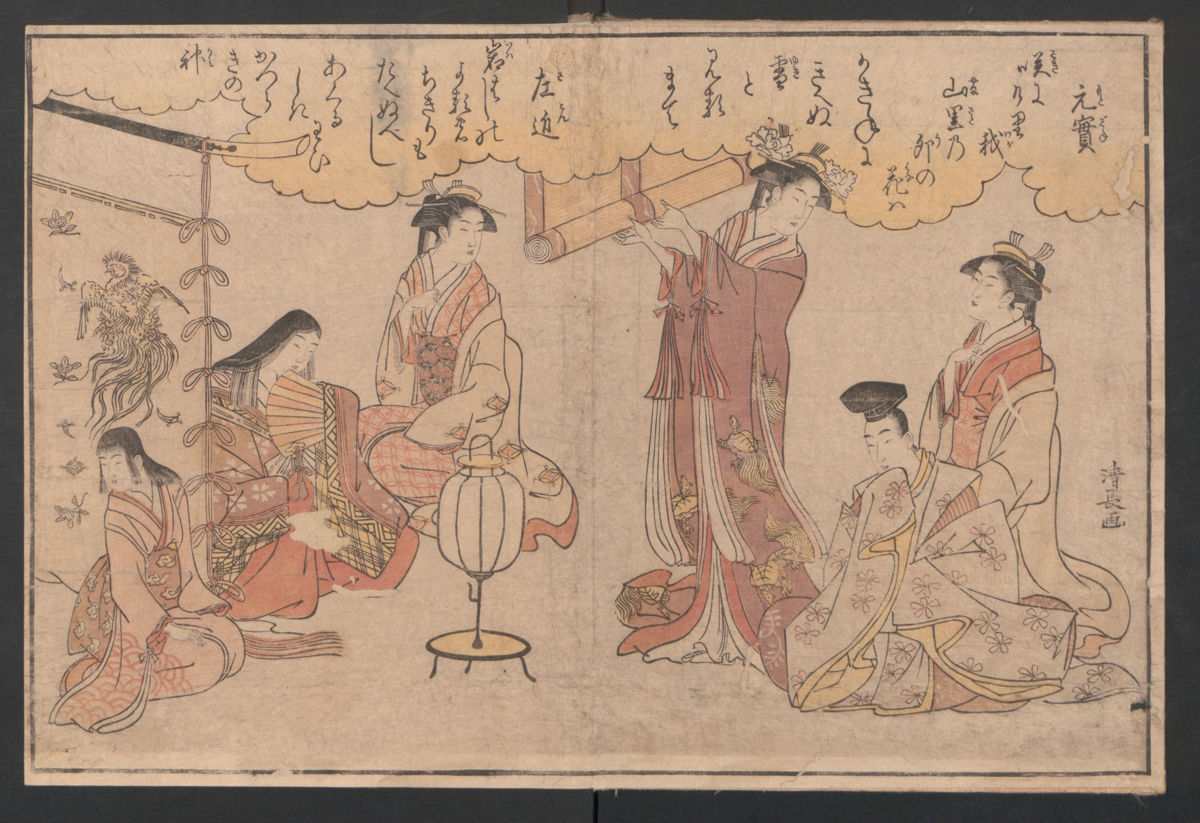 元實
咲に
けり
我
山里乃
卯の
花ハ
かきねに
きえぬ
雪
と
見る
まて
左近
岩はしの
よる乃
ちきりも
たへぬへし
あくる
わひ
しき
かつら
きの
神
清長画